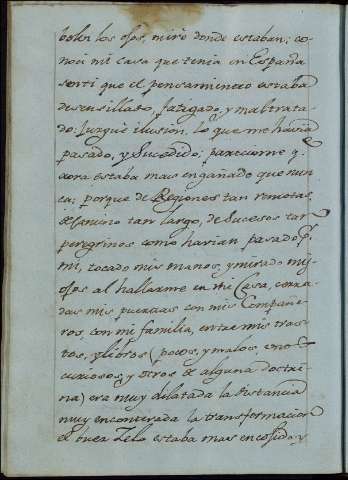 bolbi los ojos, miré donde estaban; co-
noci mi casa que tenia en España
senti que el pensamiento estaba
desensillado, fatigado, y maltrata-
do; Jurguè ilusion, lo que me havia
pasado, y Sucedido; pareciome q.
aora estaba mas engañado que nun-
ca; porque de Regiones tan remotas,
camino tan largo, de Sucesos tan
peregrinos como havian pasado p.r
mi, tocado mis manos, y mirado mis
ojos al hallarme en mi Casa, cerra-
das mis puertas con mis Compañe-
ros, con mi familia, entre mis tras-
tos, y libros (pocos, y malos, uno
curiosos, y otros de alguna doctri-
na) era muy dilatada la distancia
muy encontrada la transformacion
el buen Zelo estaba mas encojido, y